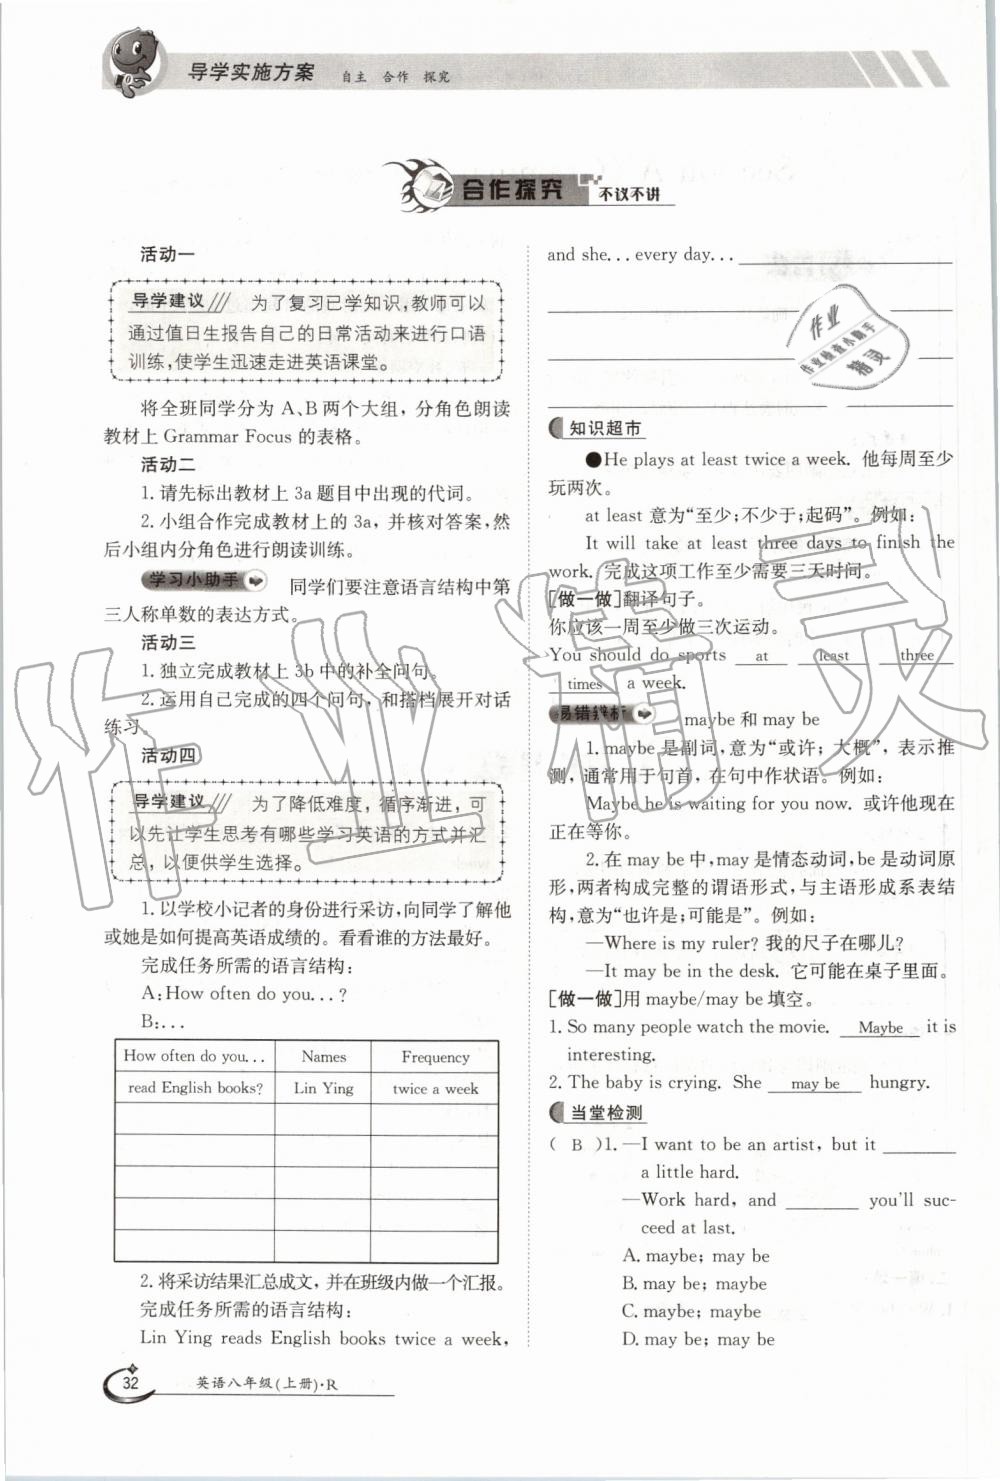 导学实施方案 自主 合作 探究
合作探究 不议不讲
活动一
导学建议 为了复习已学知识,教师可以
通过值日生报告自己的日常活动来进行口语
训练,使学生迅速走进英语课堂。
将全班同学分为 A、B两个大组,分角色朗读
教材上 Grammar Focus 的表格。
活动二
1.请先标出教材上 3a 题目中出现的代词。
2.小组合作完成教材上的 3a,并核对答案,然
后小组内分角色进行朗读训练。
学习小助手 同学们要注意语言结构中第
三人称单数的表达方式。
活动三
1.独立完成教材上 3b 中的补全问句。
2.运用自己完成的四个问句,和搭档展开对话
练习。
活动四
导学建议 为了降低难度,循序渐进,可
以先让学生思考有哪些学习英语的方式并汇
总,以便供学生选择。
1.以学校小记者的身份进行采访,向同学了解他
或她是如何提高英语成绩的。看看谁的方法最好。
完成任务所需的语言结构:
A:How often do you...?
B:...
How often do you... Names Frequency
read English books? Lin Ying twice a week
2.将采访结果汇总成文,并在班级内做一个汇报。
完成任务所需的语言结构:
Lin Ying reads English books twice a week,
32 英语八年级(上册)·R
and she...every day...
知识超市
●He plays at least twice a week. 他每周至少
玩两次。
at least 意为“至少;不少于;起码”。例如:
It will take at least three days to finish the
work. 完成这项工作至少需要三天时间。
[做一做]翻译句子。
你应该一周至少做三次运动。
You should do sports at least three
times a week.
易错辨析 maybe 和 may be
1. maybe 是副词,意为“或许;大概”,表示推
测,通常用于句首,在句中作状语。例如:
Maybe he is waiting for you now. 或许他现在
正在等你。
2.在 may be 中,may 是情态动词,be 是动词原
形,两者构成完整的谓语形式,与主语形成系表结
构,意为“也许是;可能是”。例如:
—Where is my ruler? 我的尺子在哪儿?
—It may be in the desk. 它可能在桌子里面。
[做一做]用 maybe/may be 填空。
1. So many people watch the movie. Maybe it is
interesting.
2. The baby is crying. She may be hungry.
当堂检测
( B )1. —I want to be an artist, but it ________
a little hard.
—Work hard, and ________ you'll suc-
ceed at last.
A. maybe; may be
B. may be; maybe
C. maybe; maybe
D. may be; may be
作业
作业检查小助手
精灵
作业精灵